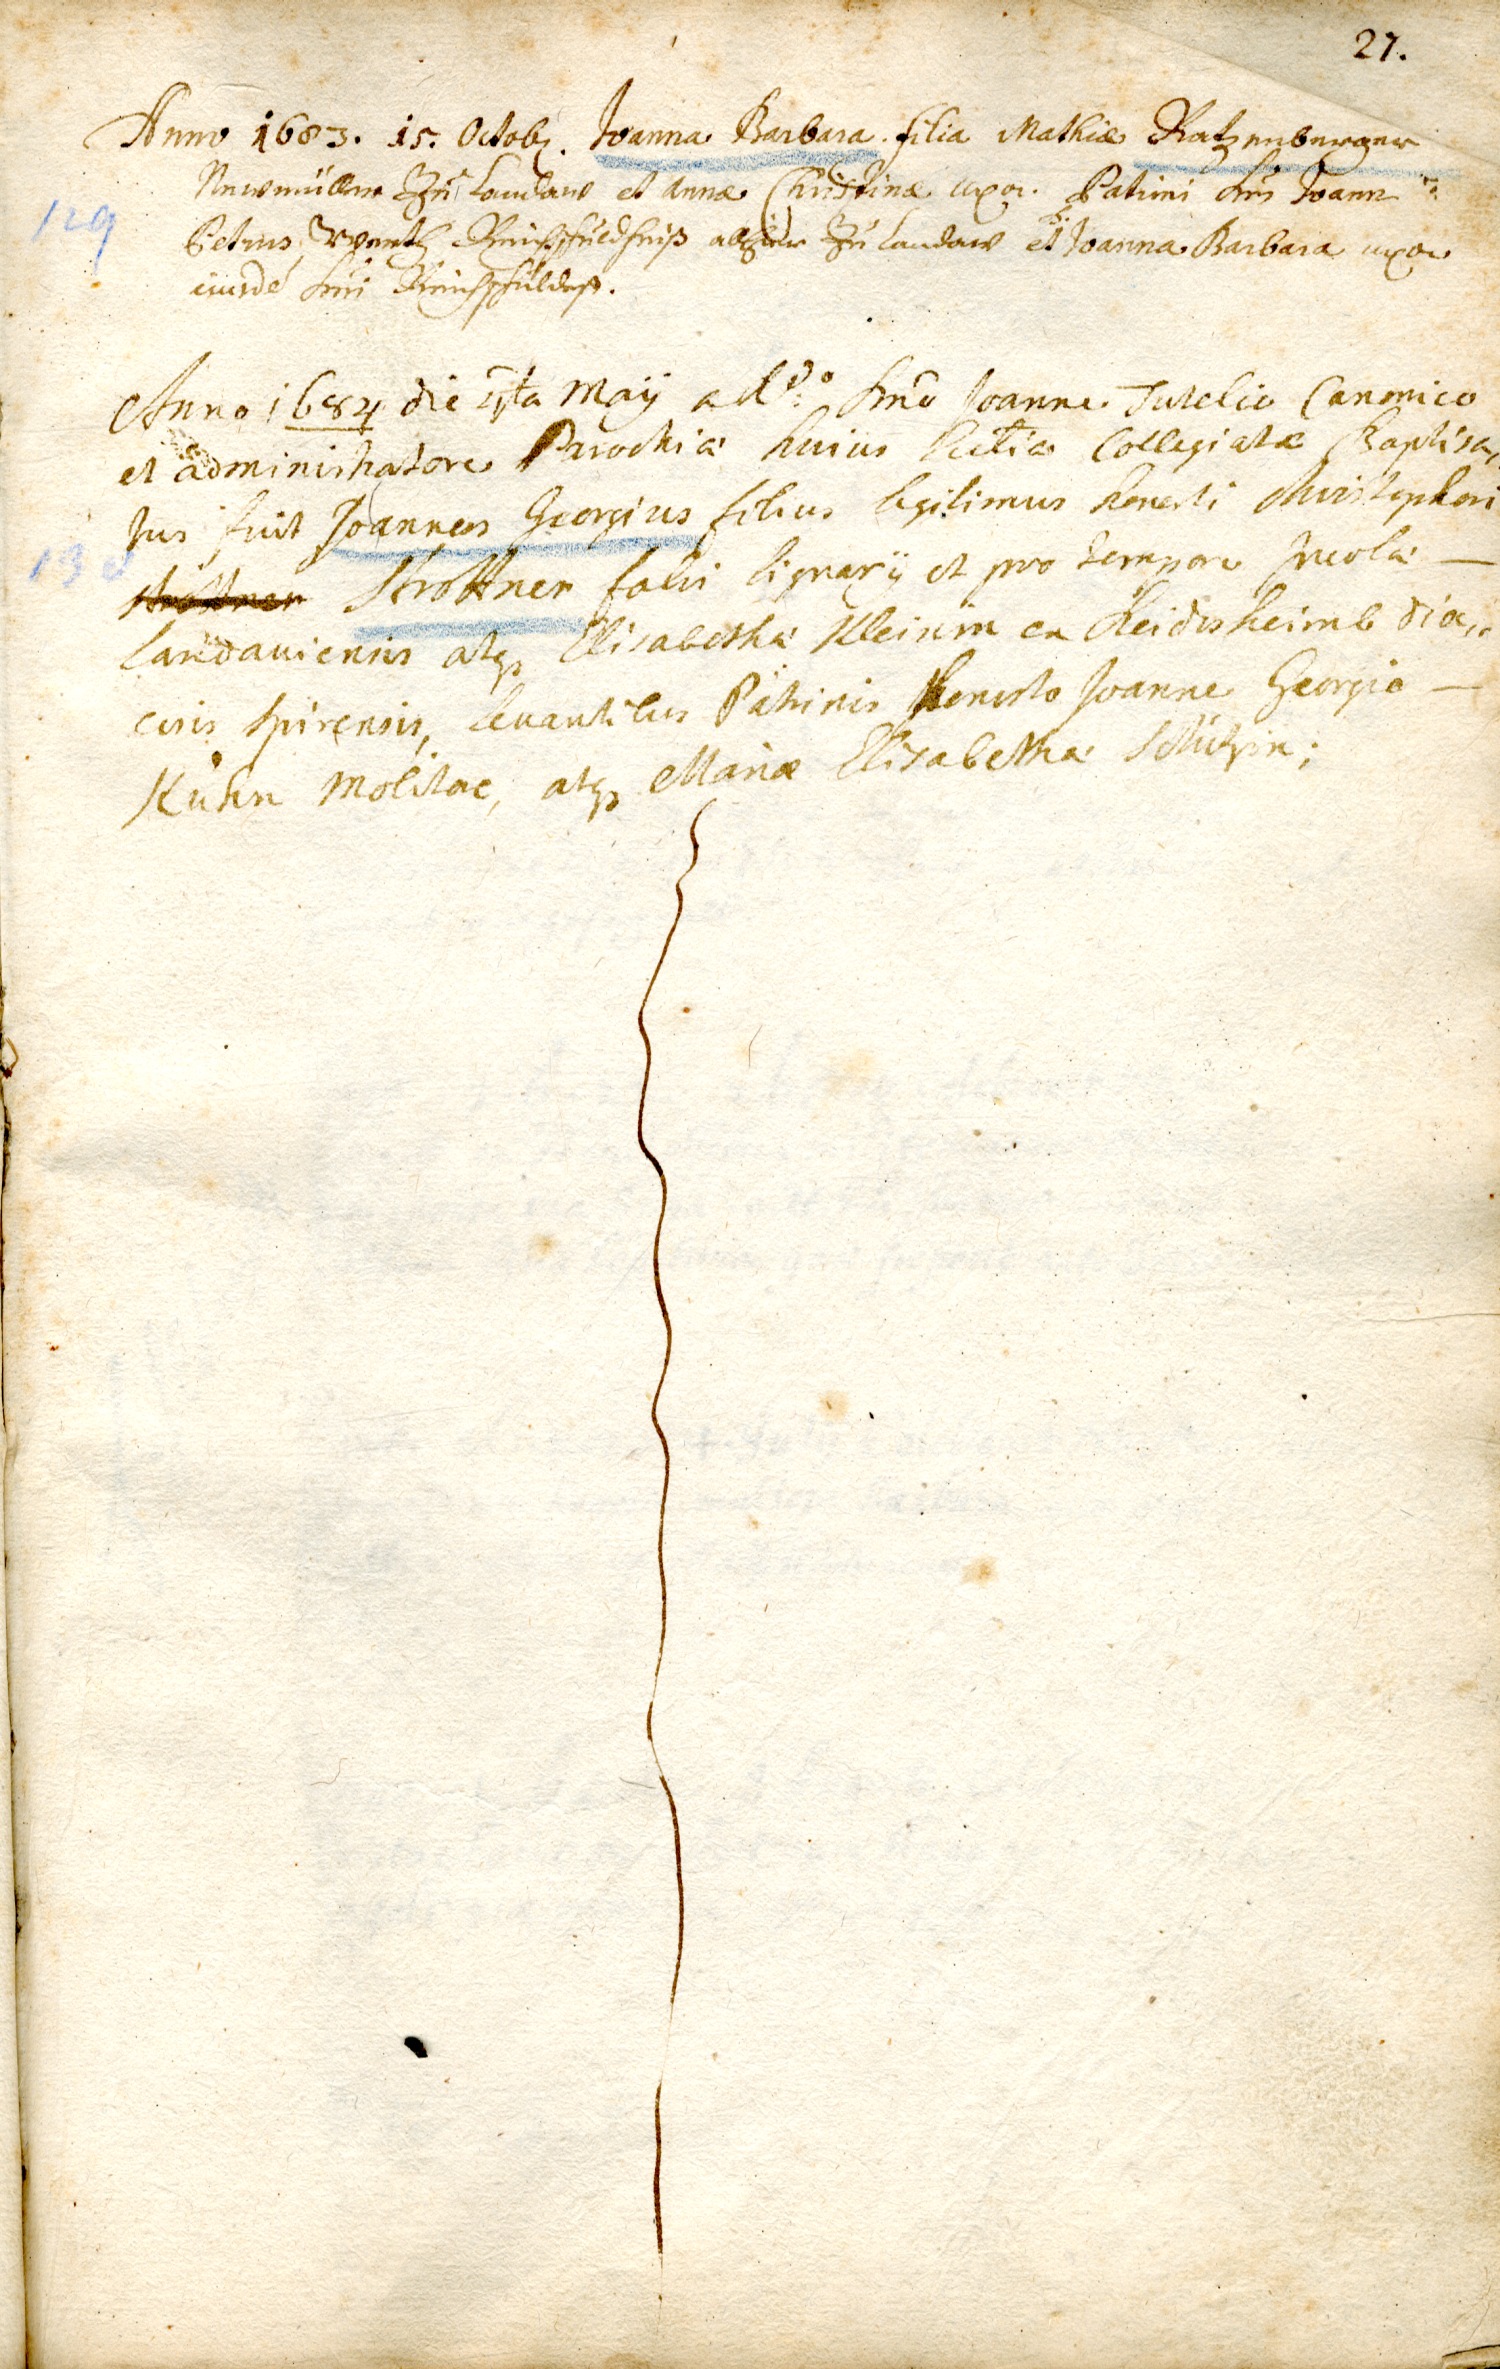 27.
Anno 1683. 15. Octob. Joanna Barbara filia Mathiæ Ratzenberger
Newmüller Zu Landaw et Annæ Christinæ uxor. Patrini Joann
Petrus Wentz alhier Zu Landaw et Joanna Barbara uxor
eiusdē
129
Anno 1684 die May a Rdo: Joanne Canonico
et administratore Parochiæ huius Collegiatæ Baptisa,
tus fuit Joannes Georgius filius legitimus honesti Christophori
130
Strottner fabri lignarij et pro tempore Incolæ —
Landauiensis atq Elisabethæ Kleinin ex Heidesheimb diæ,,
cesis Spirensis, leuantibus Patrinis honesto Joanne Georgio —
Kühn Molitore, atq Maria Elisabetha Schützin;